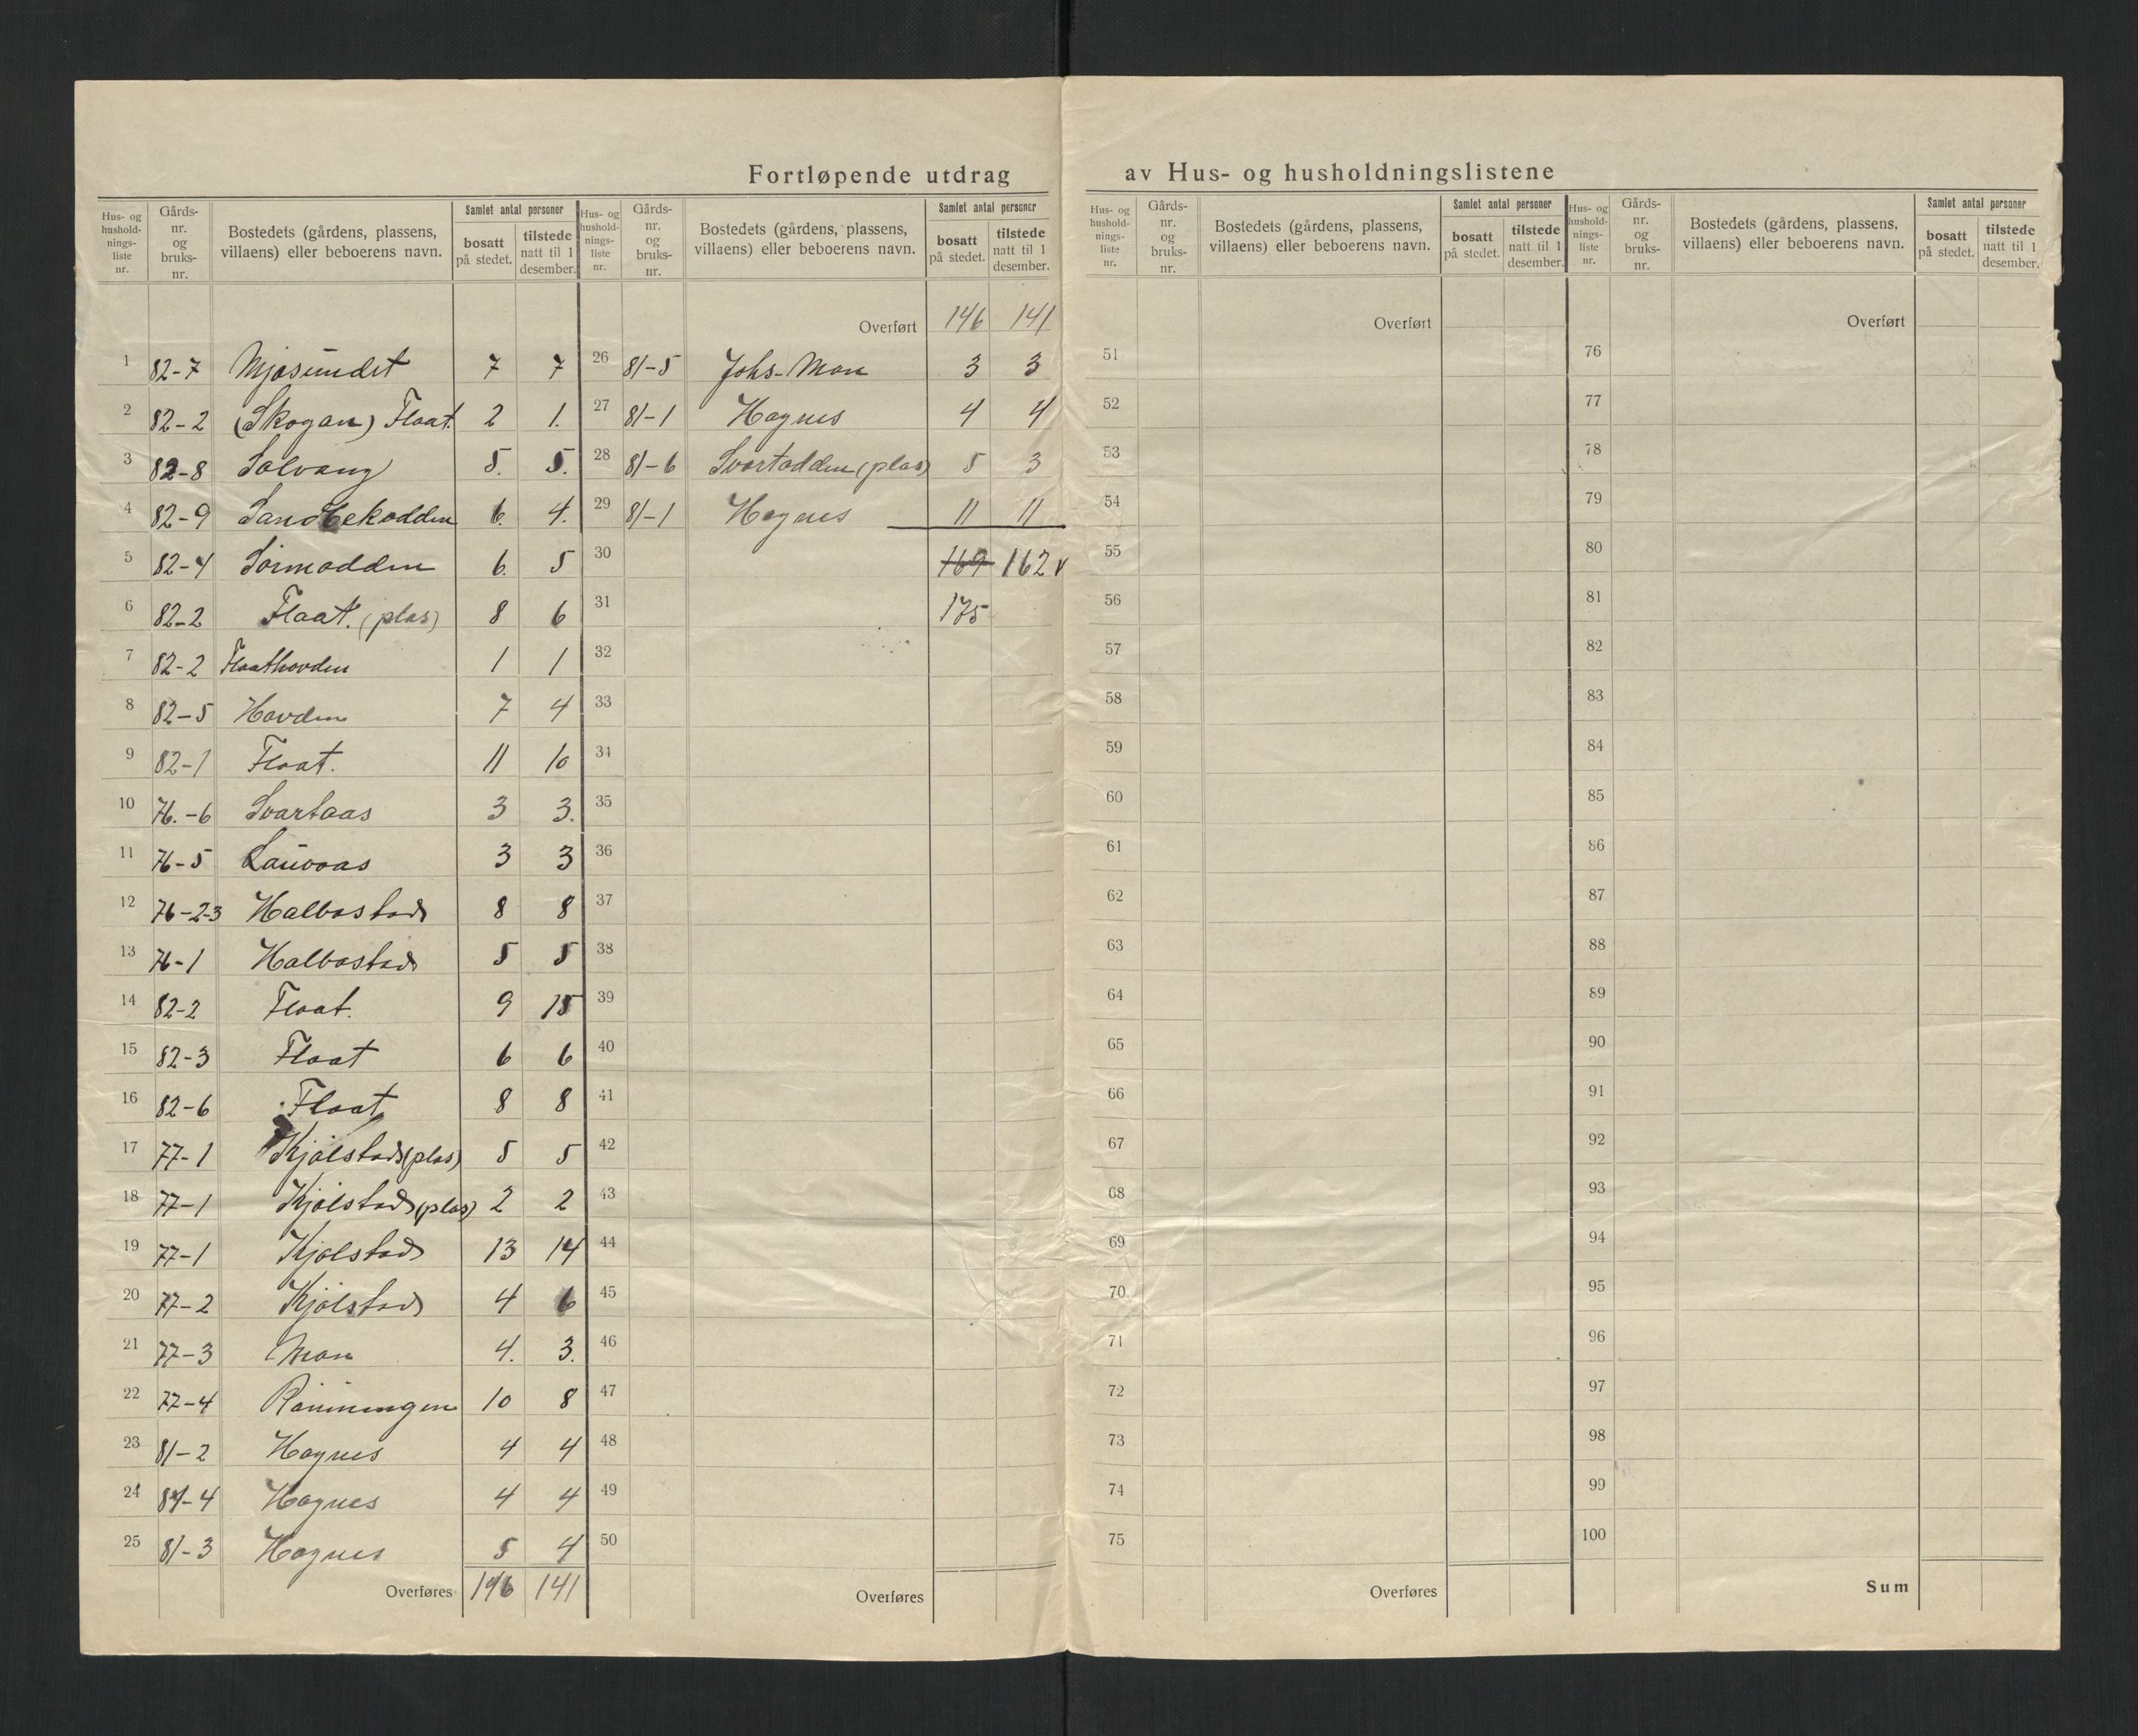 Fortløpende utdrag av Hus- og husholdningslistene
Hus- og hushold- nings- liste nr. | Gårds- nr. og bruks- nr. | Bostedets (gårdens, plassens, villaens) eller beboerens navn. | Samlet antal personer | bosatt på stedet. | tilstede natt til 1 desember.
1 82-7 Mjosundet 7 7
2 82-2 (Skogan) Flaat. 2 1.
3 82-8 Solvang 5. 5.
4 82-9 Sandbekodden 6. 4.
5 82-4 Sörmodden 6. 5
6 82-2 Flaat. (plas) 8 6
7 82-2 Flaathovden 1 1
8 82-5 Hovden 7 4
9 82-1 Flaat. 11 10
10 76.-6 Svartaas 3 3.
11 76-5 Lauvaas 3 3
12 76-2-3 Halbostad 8 8
13 76-1 Halbostad 5 5
14 82-2 Flaat. 9 15
15 82-3 Flaat 6 6
16 82-6 Flaat 8 8
17 77-1 Kjölstad (plas) 5 5
18 77-1 Kjölstad (plas) 2 2
19 77-1 Kjölstad 13 14
20 77-2 Kjölstad 4 6
21 77-3 Moan 4. 3.
22 77-4 Rönningen 10 8
23 81-2 Hagnes 4 4
24 81-4 Hagnes 4 4
25 81-3 Hagnes 5 4
Overføres 146 141
Hus- og hushold- nings- liste nr. | Gårds- nr. og bruks- nr. | Bostedets (gårdens, plassens, villaens) eller beboerens navn. | Samlet antal personer | bosatt på stedet. | tilstede natt til 1 desember.
Overført 146 141
26 81-5 Johs. Moan 3 3
27 81-1 Hagnes 4 4
28 81-6 Svartodden (plas) 5 3
29 81-1 Hagnes 11 11
30 169 162 v
31 175
32
33
34
35
36
37
38
39
40
41
42
43
44
45
46
47
48
49
50
Overføres
Hus- og hushold- nings- liste nr. | Gårds- nr. og bruks- nr. | Bostedets (gårdens, plassens, villaens) eller beboerens navn. | Samlet antal personer | bosatt på stedet. | tilstede natt til 1 desember.
Overført
51
52
53
54
55
56
57
58
59
60
61
62
63
64
65
66
67
68
69
70
71
72
73
74
75
Overføres
Hus- og hushold- nings- liste nr. | Gårds- nr. og bruks- nr. | Bostedets (gårdens, plassens, villaens) eller beboerens navn. | Samlet antal personer | bosatt på stedet. | tilstede natt til 1 desember.
Overført
76
77
78
79
80
81
82
83
84
85
86
87
88
89
90
91
92
93
94
95
96
97
98
99
100
Sum